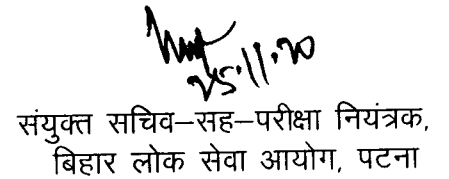 25.11.20
संयुक्त सचिव–सह–परीक्षा नियंत्रक,
बिहार लोक सेवा आयोग, पटना